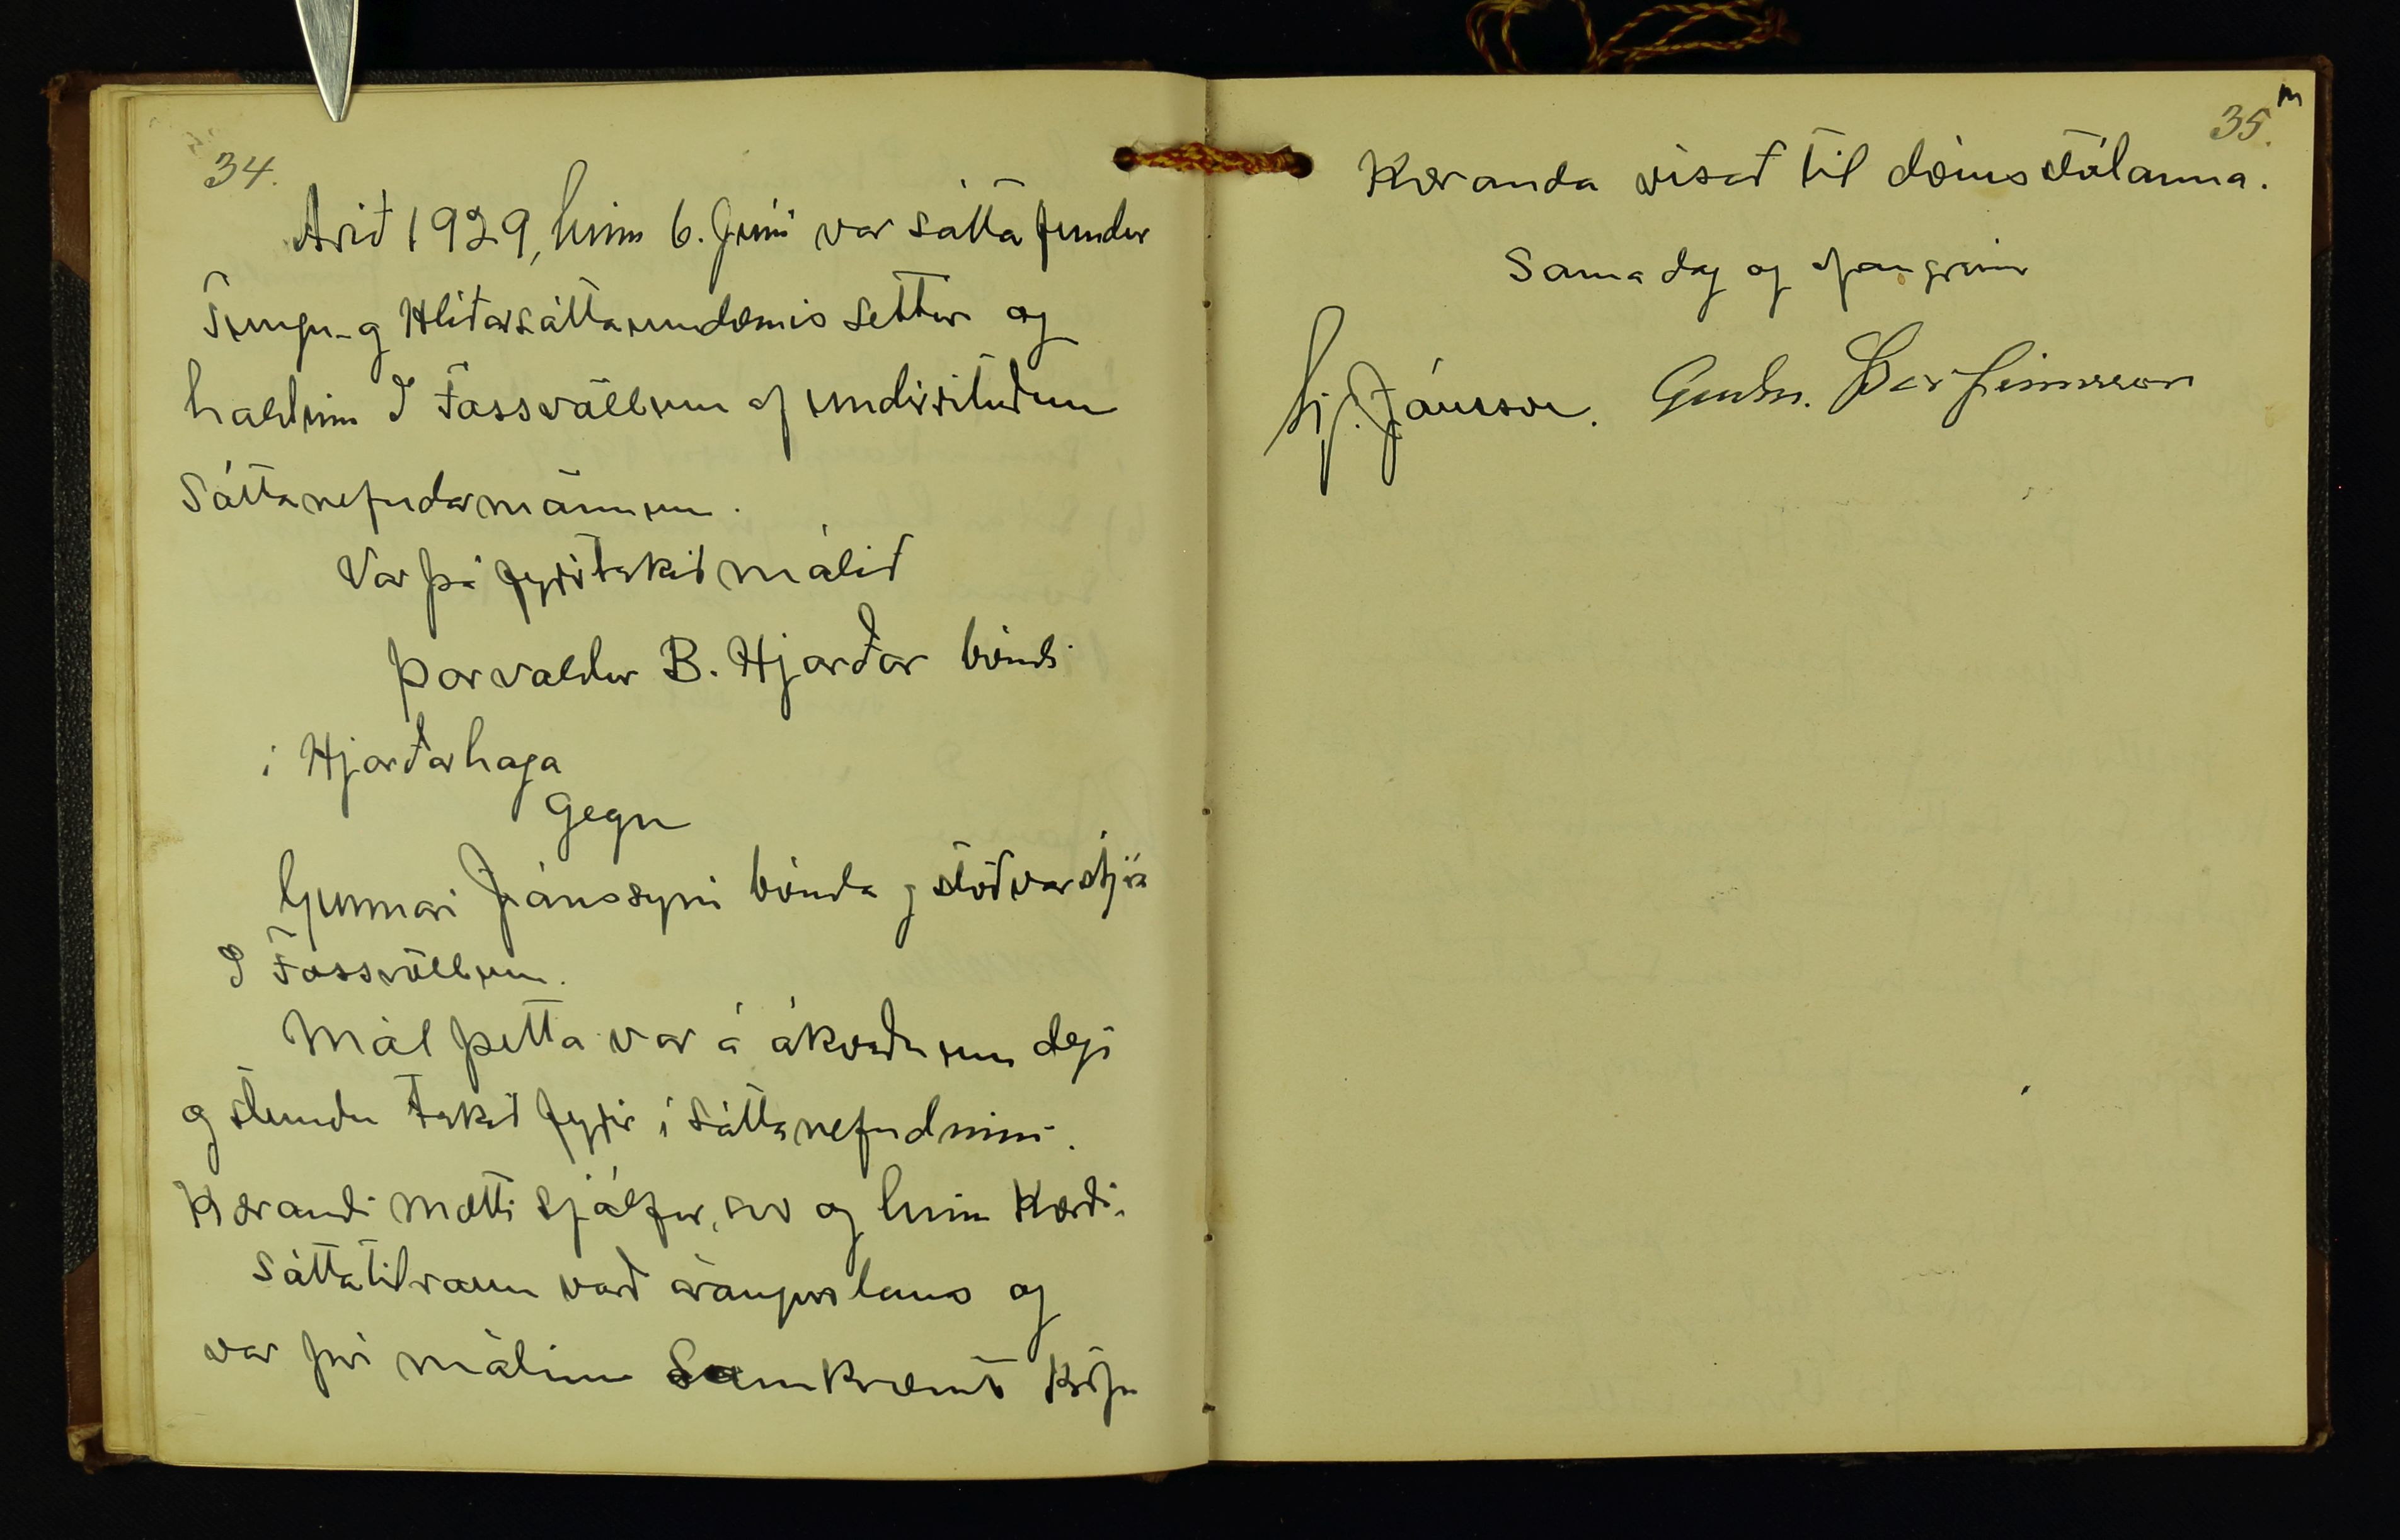 34.
Árið 1929, hinn 6. Júní var sáttafundur
Tungu- og Hlíðarsáttaumdæmis settur og
haldinn á Fossvöllum af undirrituðum
Sáttanefndarmönnum.
Var þá fyrirtekið málið
Þorvaldur B. Hjarðar bóndi
í Hjarðarhaga
Gegn
Gunnari Jónssyni bónda og stöðvarstjóra
á Fossvöllum.
Mál þetta var á ákveðnum degi
og stundu tekið fyrir í sáttanefndinni.
Kærandi mætti sjálfur, svo og hinn Kærði.
Sáttatilraun varð árangurslaus og
var því málinu Samkvæmt Kröfu
35.
Kæranda vísað til dómstólanna.
Sama dag og ofan greinir
Jónsson. Guðm. Þorfinnsson